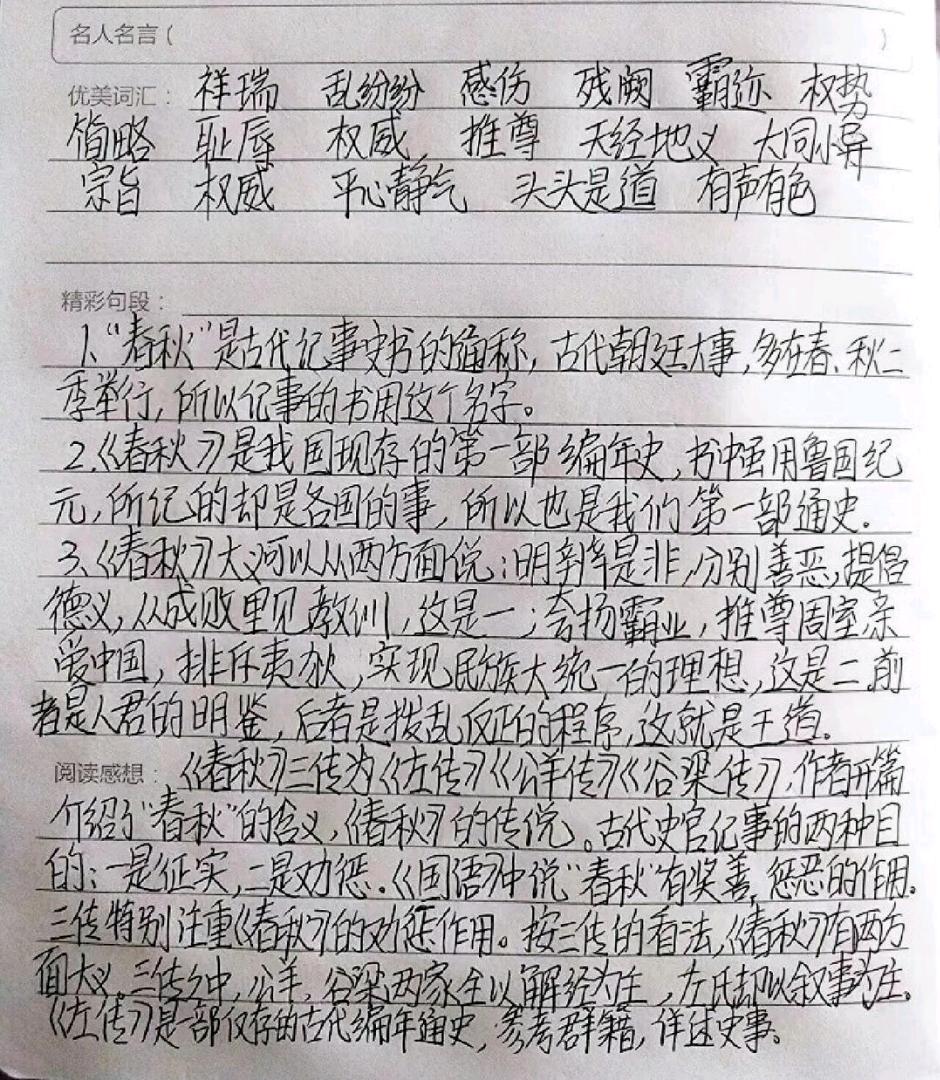 名人名言（ ）
优美词汇： 祥瑞 乱纷纷 感伤 残阙 霸迹 权势
简略 耻辱 权威 推尊 天经地义 大同小异
宗旨 权威 平心静气 头头是道 有声有色
精彩句段：
1、“春秋”是古代记事史书的通称，古代朝廷大事，多在春、秋二
季举行，所以记事的书用这个名字。
2.《春秋》是我国现存的第一部编年史，书中虽用鲁国纪
元，所记的却是各国的事，所以也是我们第一部通史.
3、《春秋》大义可以从两方面说：明辨是非，分别善恶，提倡
德义，从成败里见教训，这是一；夸扬霸业，推尊周室，亲
爱中国，排斥夷狄，实现民族大统一的理想，这是二.前
者是人君的明鉴，后者是拨乱反正的程序，这就是王道。
阅读感想： 《春秋》三传为《左传》《公羊传》《谷梁传》，作者开篇
介绍了“春秋”的含义，《春秋》的传说。古代史官记事的两种目
的：一是征实，二是劝惩.《国语》中说“春秋”有奖善，惩恶的作用.
三传特别注重《春秋》的劝惩作用。按三传的看法，《春秋》有两方
面大义.三传之中，公羊，谷梁两家全以解经为主，左氏却以叙事为主。
《左传》是一部仅存的古代编年通史，参考群籍，详述史事。